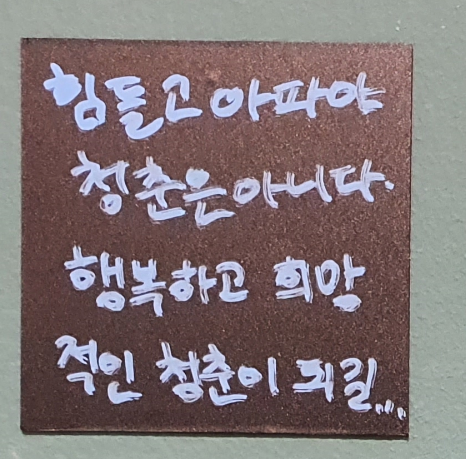 힘들고 아파야
청춘은 아니다.
행복하고 희망
적인 청춘이 되길...